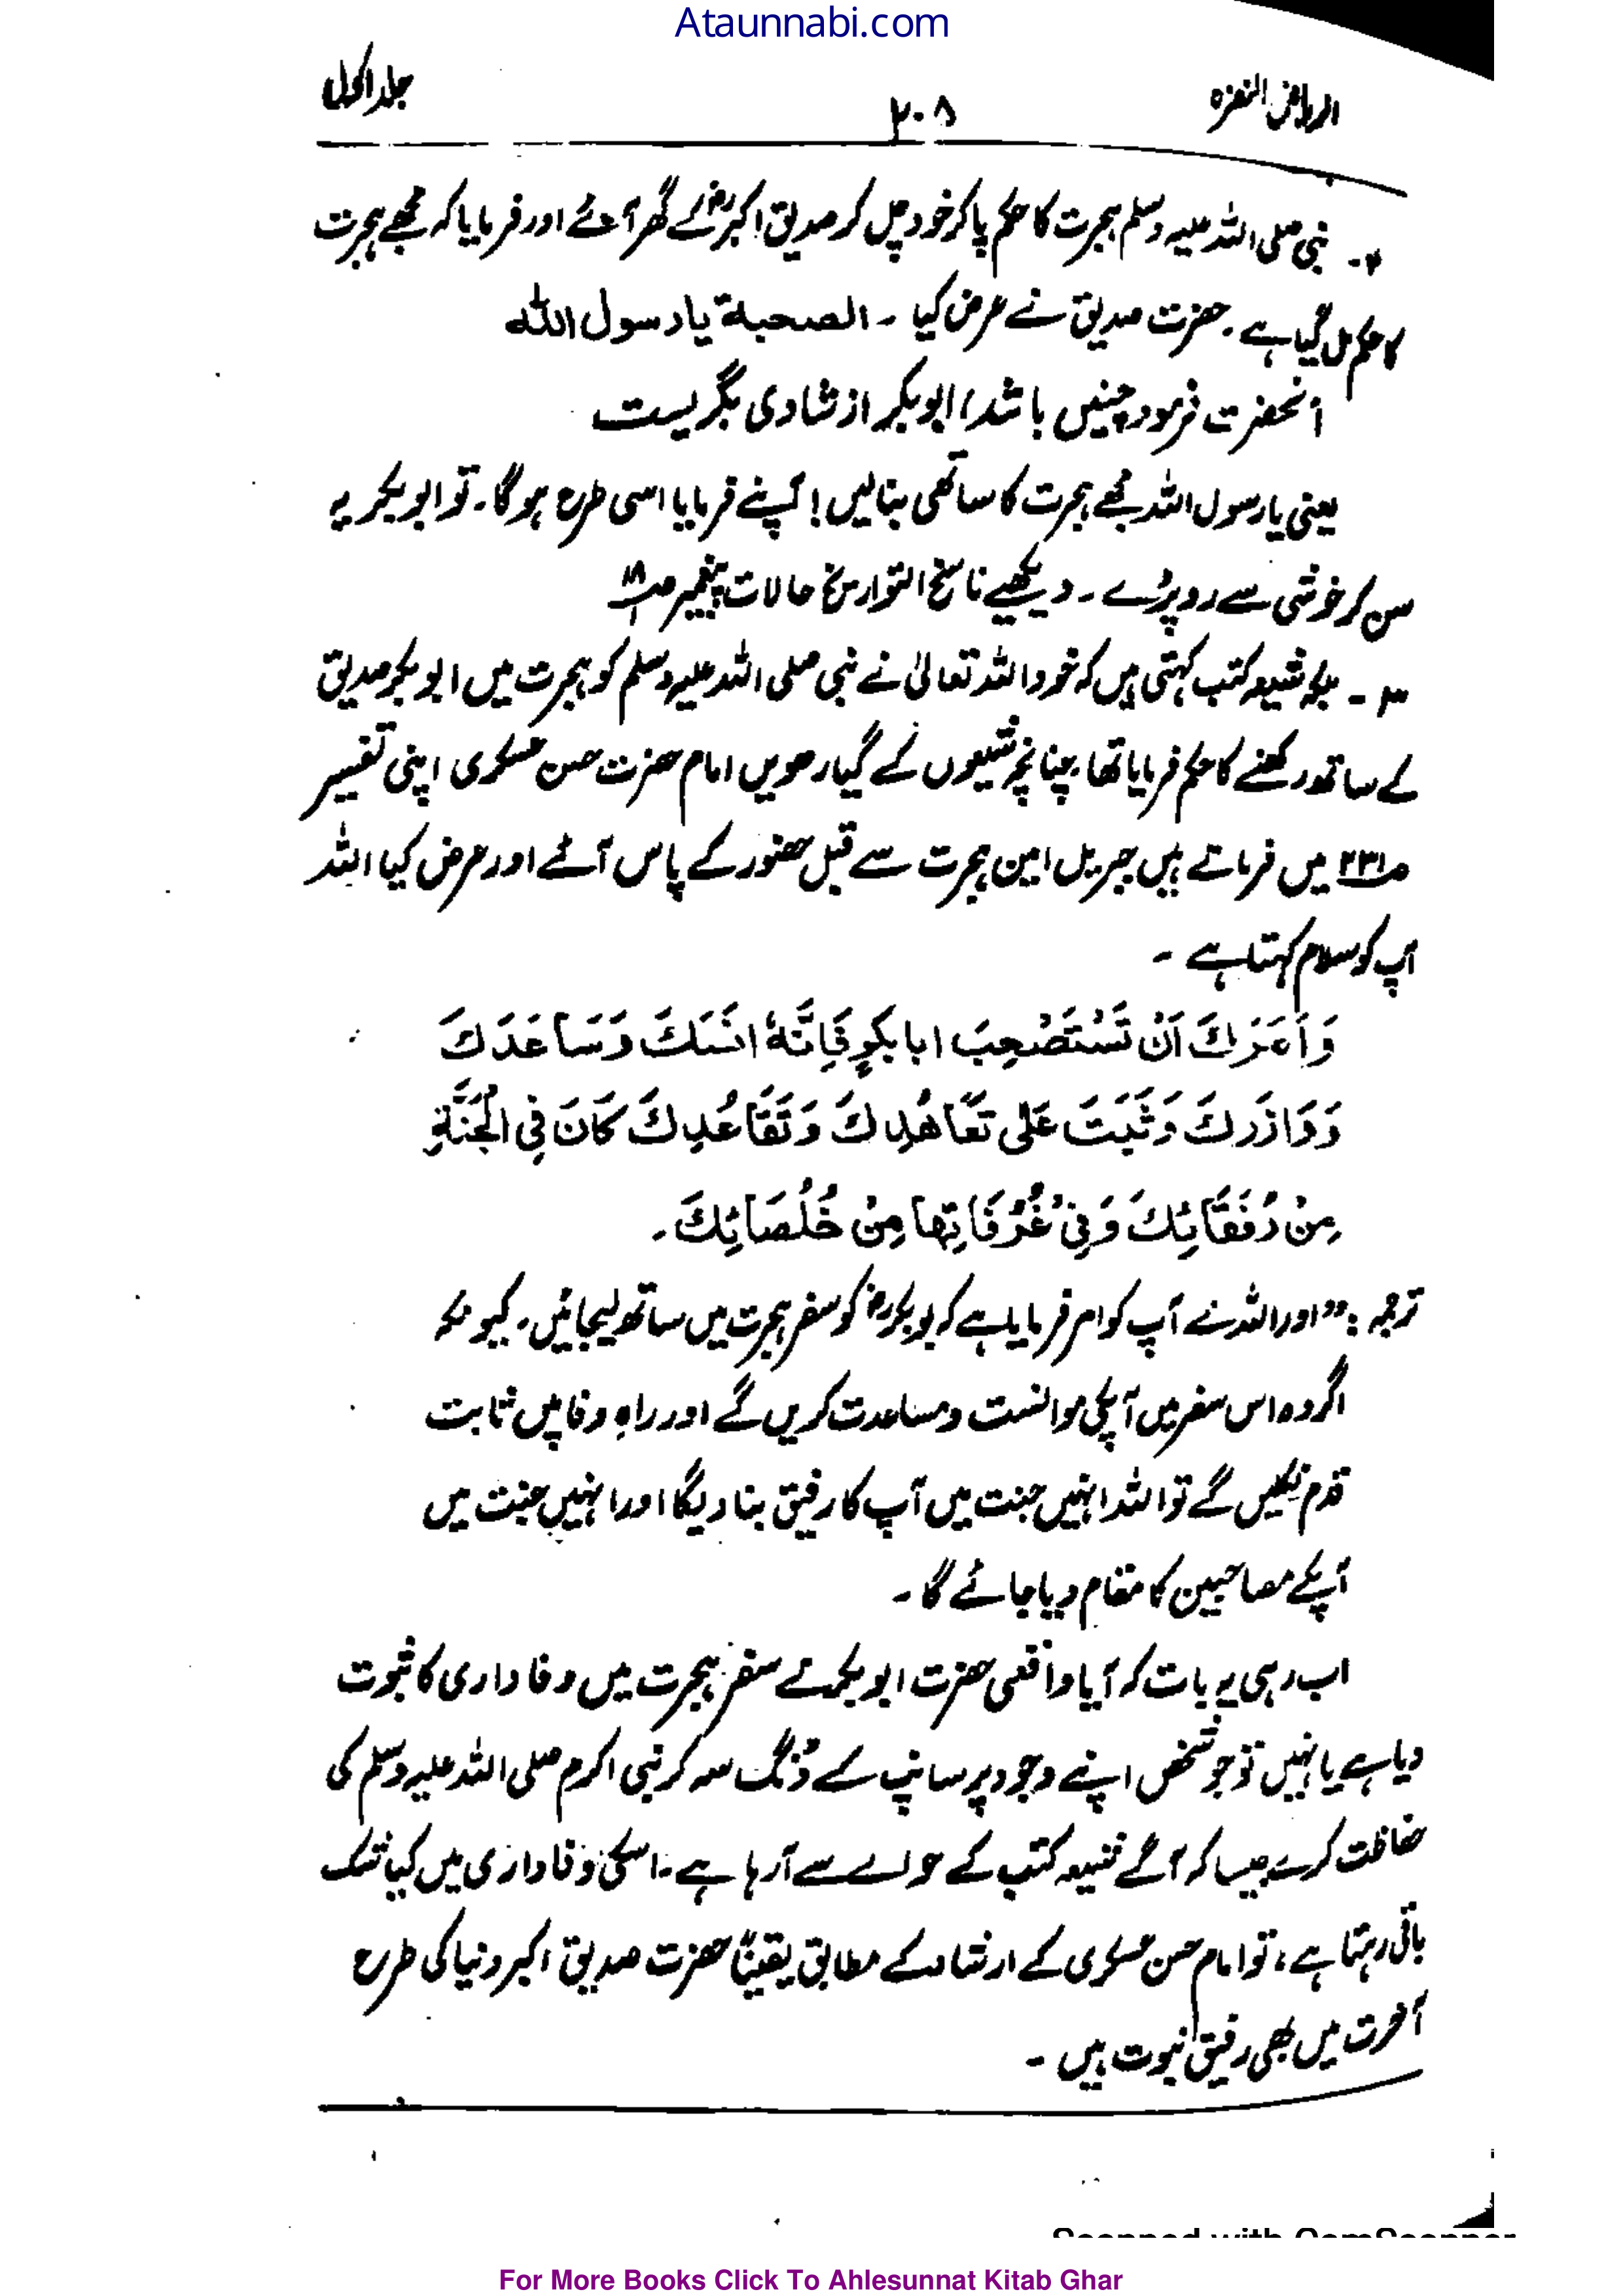 Ataunnabi.com
الریاض النضرہ
۲۰۸
جلد اول
۲۔ نبی صلی اللہ علیہ وسلم ہجرت کا حکم پا کر خود چل کر صدیق اکبر رضؓ کے گھر آئے اور فرمایا کہ مجھے ہجرت
کا حکم مل گیا ہے۔ حضرت صدیق نے عرض کیا۔ الصحبة یا رسول الله
آنحضرت فرمود چنیں باشد، ابوبکر از شادی بگریست
یعنی یا رسول اللہ مجھے ہجرت کا ساتھی بنا لیں! آپنے فرمایا اسی طرح ہو گا۔ تو ابوبکر یہ
سن کر خوشی سے رو پڑے۔ دیکھیے ناسخ التواریخ حالات پیغمبر
۳۔ بلکہ شیعہ کتب کہتی ہیں کہ خود اللہ تعالیٰ نے نبی صلی اللہ علیہ وسلم کو ہجرت میں ابوبکر صدیق
کے ساتھ رکھنے کا حکم فرمایا تھا چنانچہ شیعوں کے گیارھویں امام حضرت حسن عسکری اپنی تفسیر
ص۲۳۱ میں فرماتے ہیں جبریل امین ہجرت سے قبل حضور کے پاس آئے اور عرض کیا اللہ
آپ کو سلام کہتا ہے۔
وَأَمَرَكَ اَنْ تَسْتَصْحِبَ ابا بكرٍ فَاِنَّهٗ اٰنَسَكَ وَسَاعَدَكَ
وَوَازَرَكَ وَثَبَتَ عَلٰى تَعَاهُدِكَ وَتَعَاقُدِكَ كَانَ فِي الْجَنَّةِ
مِنْ رُفَقَائِكَ وَفِيْ غُرُفَاتِها مِنْ خُلَصَائِكَ۔
ترجمہ: ”اور اللہ نے آپ کو امر فرمایا ہے کہ ابوبکرؓ کو سفر ہجرت میں ساتھ لیجائیں۔ کیونکہ
اگر وہ اس سفر میں آپکی موانست و مساعدت کریں گے اور راہِ وفا میں ثابت
قدم نکلیں گے تو اللہ انہیں جنت میں آپ کا رفیق بنا دیگا اور انہیں جنت میں
آپکے مصاحبین کا مقام دیا جائے گا۔
اب رہی یہ بات کہ آیا واقعی حضرت ابوبکر نے سفر ہجرت میں وفاداری کا ثبوت
دیا ہے یا نہیں تو جو شخص اپنے وجود پر سانپ کے ڈنگ سہ کر نبی اکرم صلی اللہ علیہ وسلم کی
حفاظت کرے جیسا کہ آگے شیعہ کتب کے حوالے سے آ رہا ہے۔ اسکی وفاداری میں کیا شک
باقی رہتا ہے، تو امام حسن عسکری کے ارشاد کے مطابق یقیناً حضرت صدیق اکبر دنیا کی طرح
آخرت میں بھی رفیق نبوت ہیں۔
Scanned with CamScanner
For More Books Click To Ahlesunnat Kitab Ghar